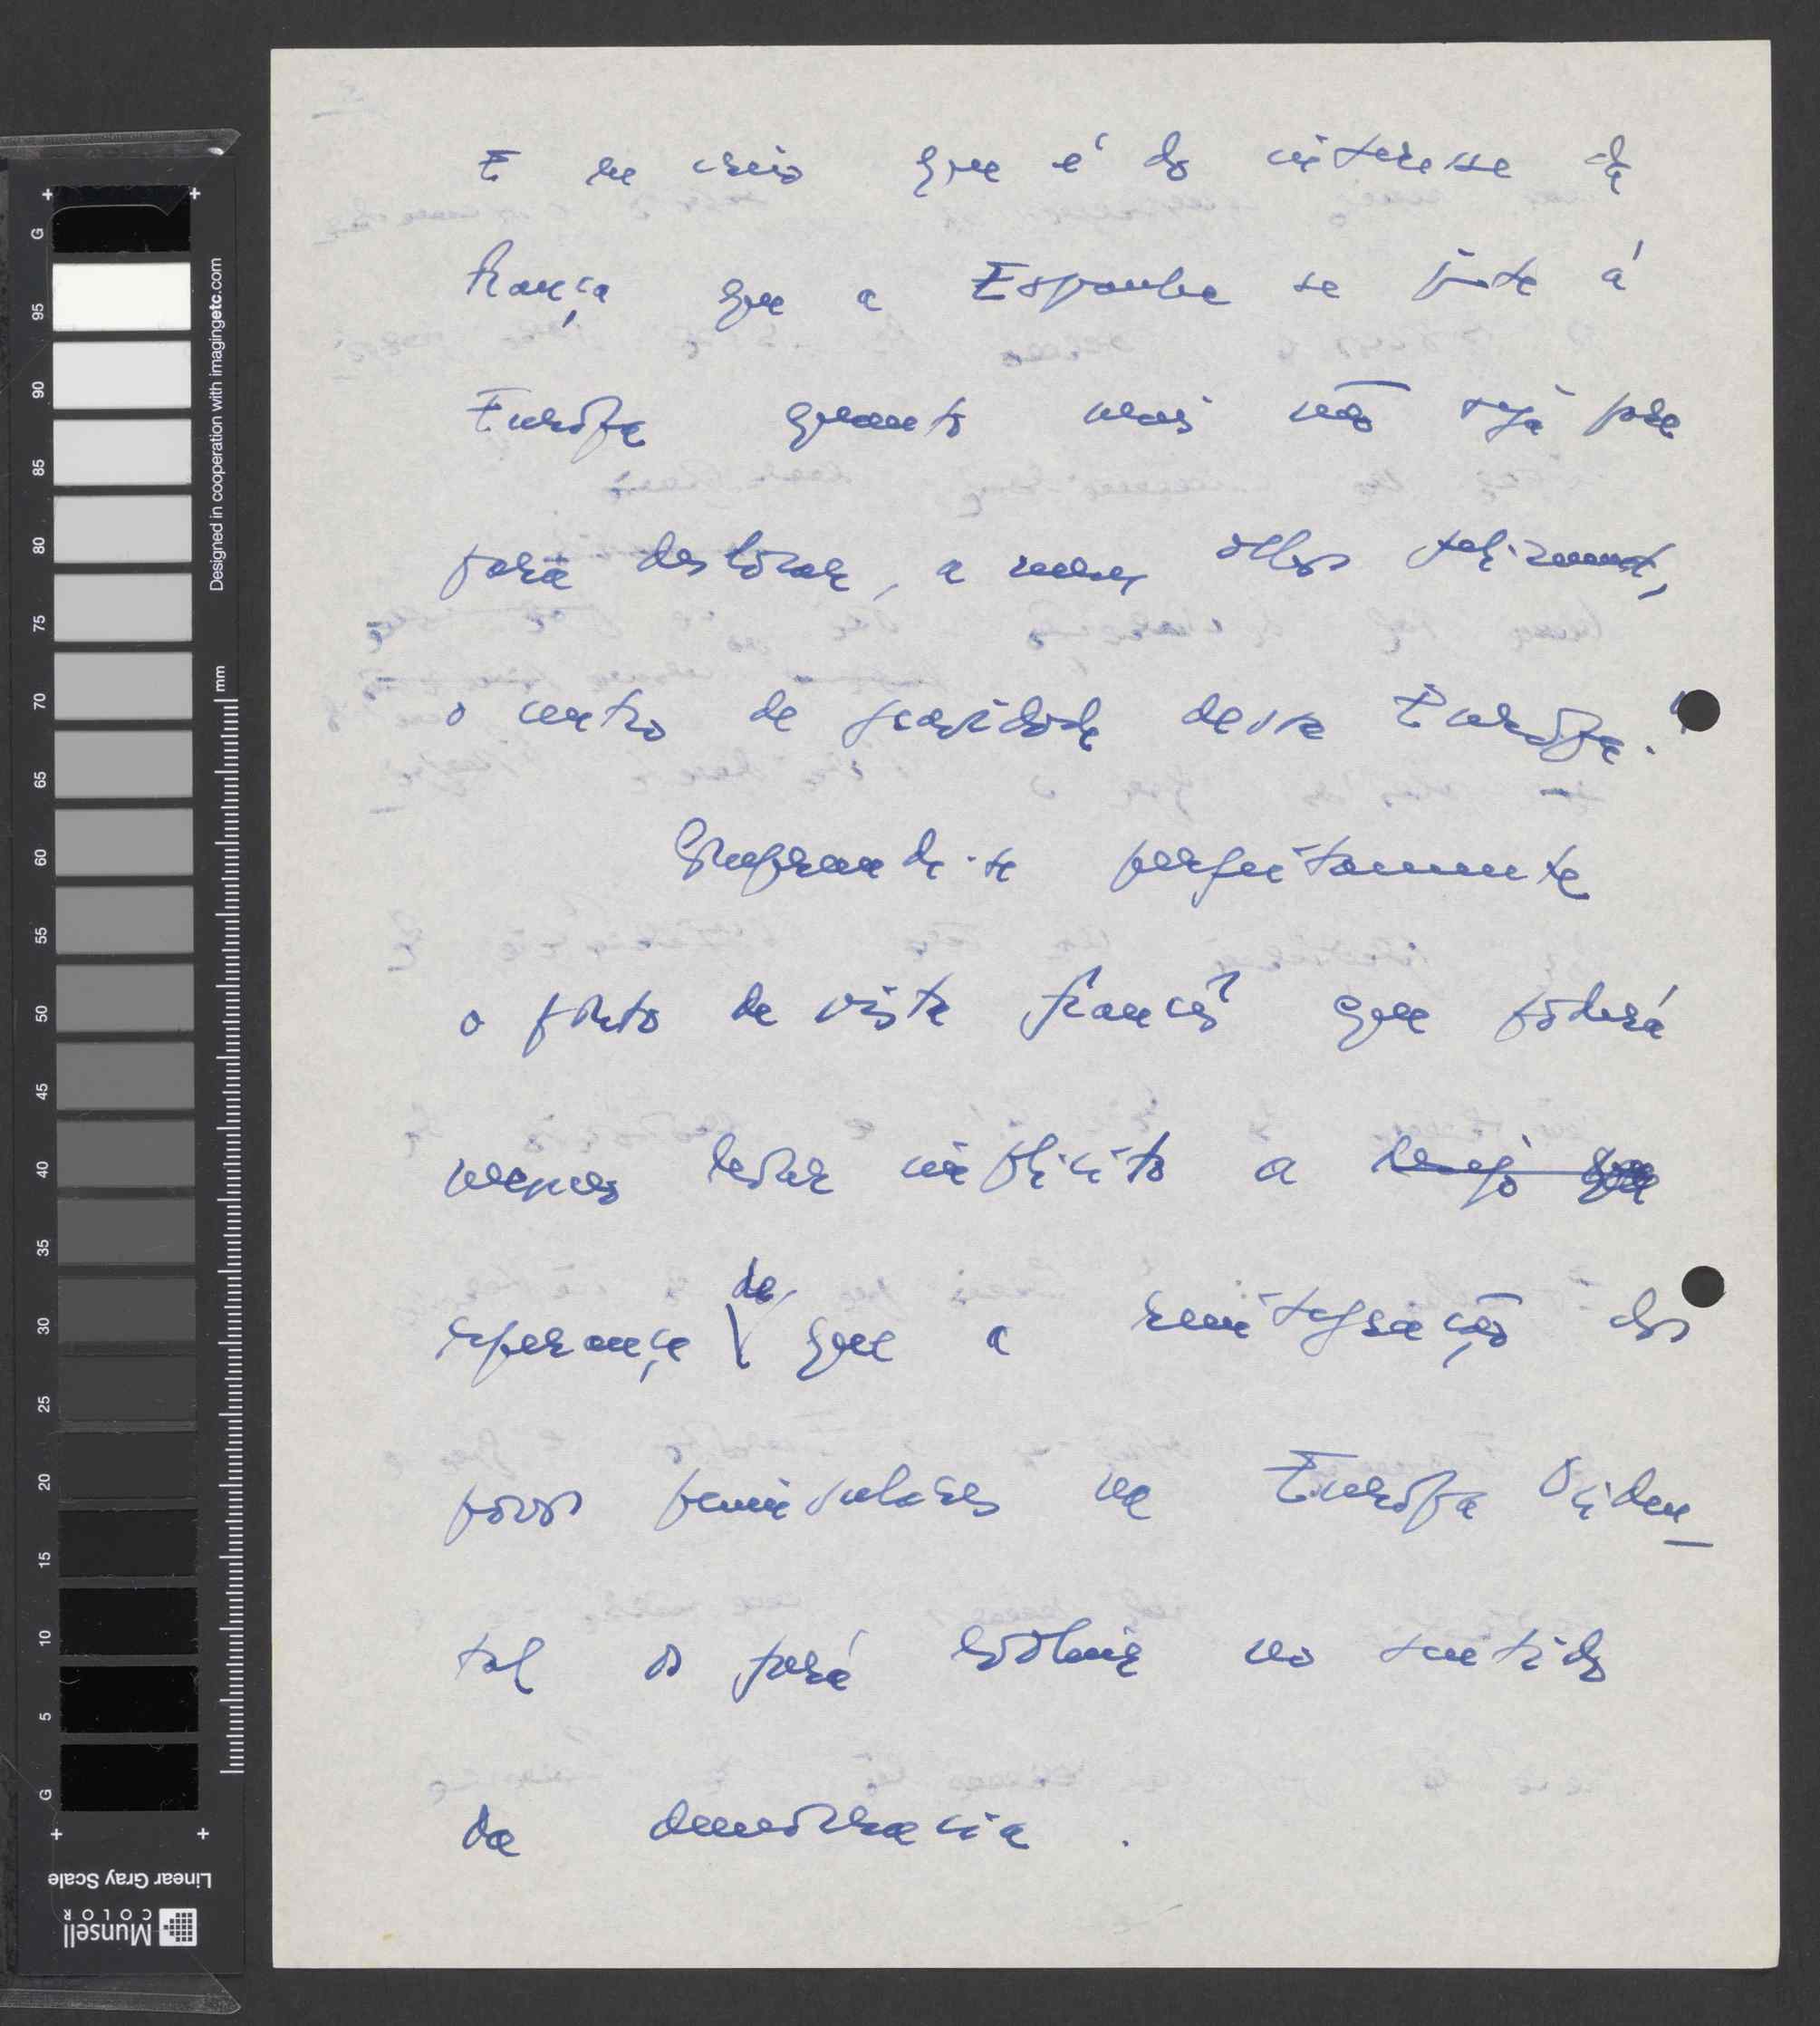 E eu creio que é do interesse da
França que a Espanha se junte á
Europa quanto mais não seja pára
pára deslocar, a meus olhos felizmente,
o centro de gravidade dessa Europa."
Compreende-se perfeitamente
o ponto de vista francês que poderá
menos levar implicito a desejo que
esperança de que a reintegração dos
povos peninsulares na Europa Ociden_
tal os fará evoluir no sentido
da democracia.
G 95 90 85 80 75 70 65 60 55 50 45 40 35 30 25 20 15 10 5 G
Designed in cooperation with imagingetc.com
mm
Linear Gray Scale
Munsell
COLOR